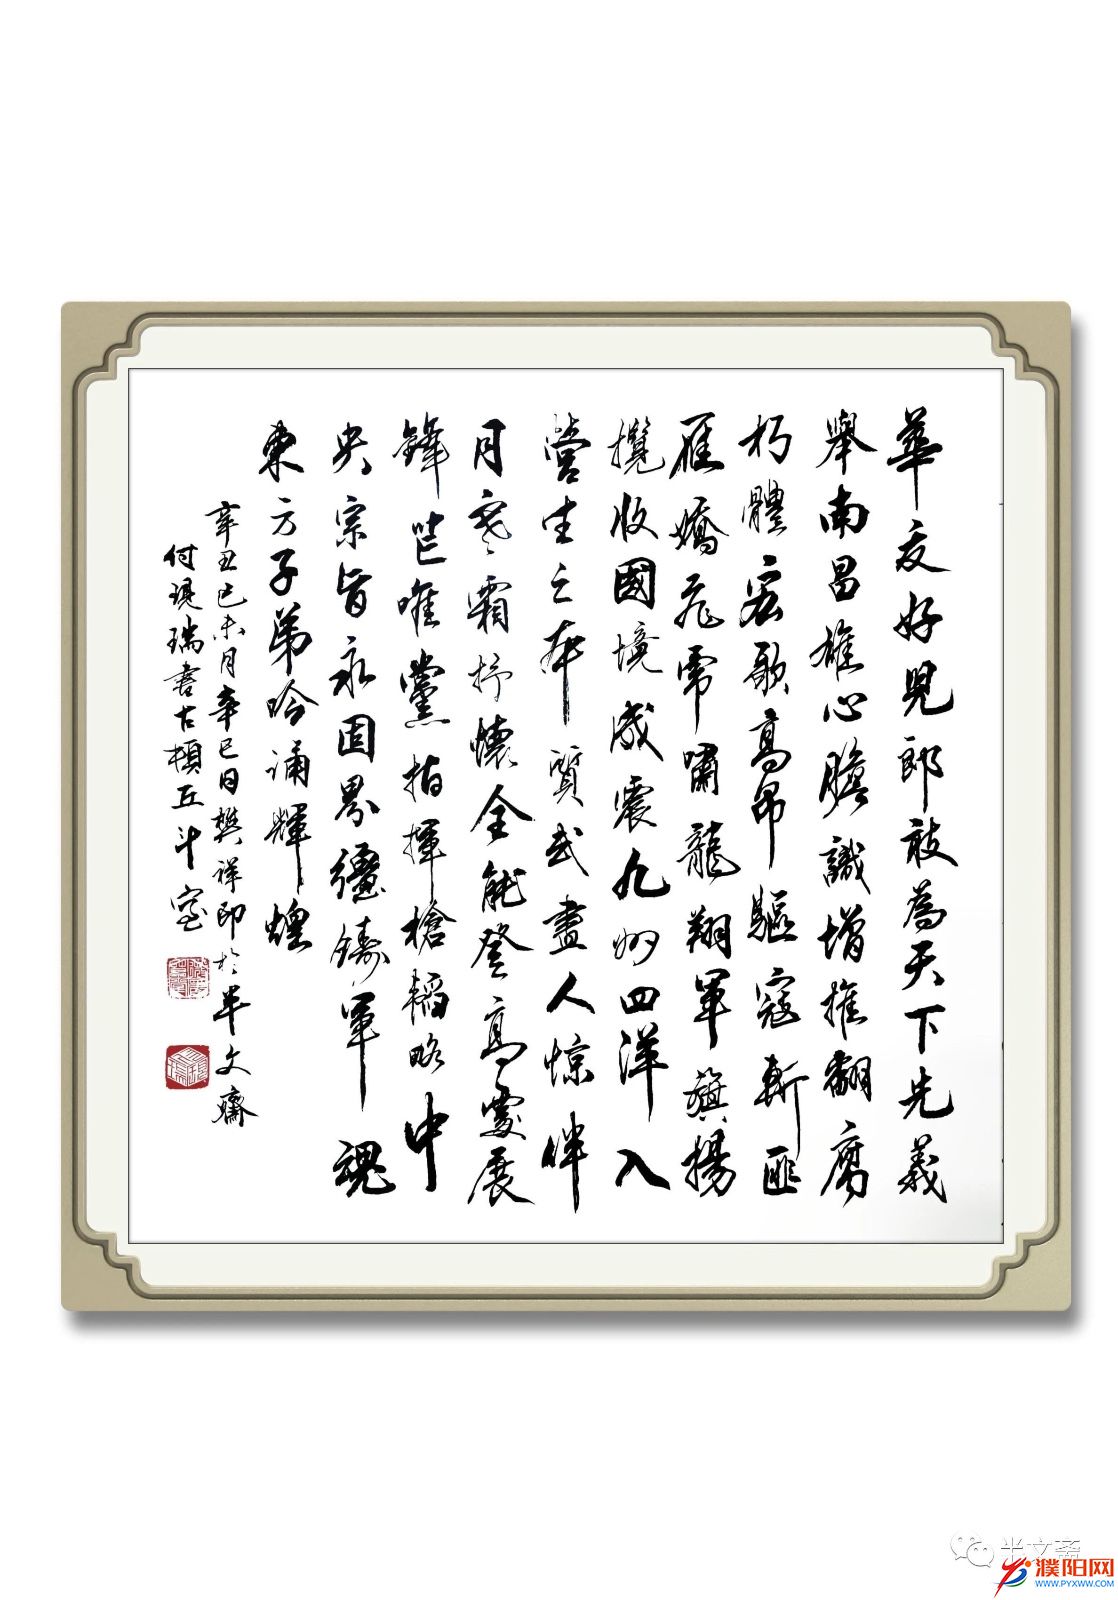 華夏好兒郎敢為天下先義
舉南昌雄心膽識增摧翻腐
朽體宏歌高昂驅寇斬匪
雁嬌飛虎嘯龍翔軍旗揚
攬收國境威震九州四洋入
營生之本質武盡人惊伴
月寒霜抒懷全能登高處展
鋒芒唯黨指揮槍韜略中
央宗旨永固界疆鑄軍魂
東方子弟吟誦輝煌
辛丑乙未月辛巳日樊祥印於半文齋
付現瑞書古頓丘斗室
半文斋
濮阳网
WWW.PYXWW.COM